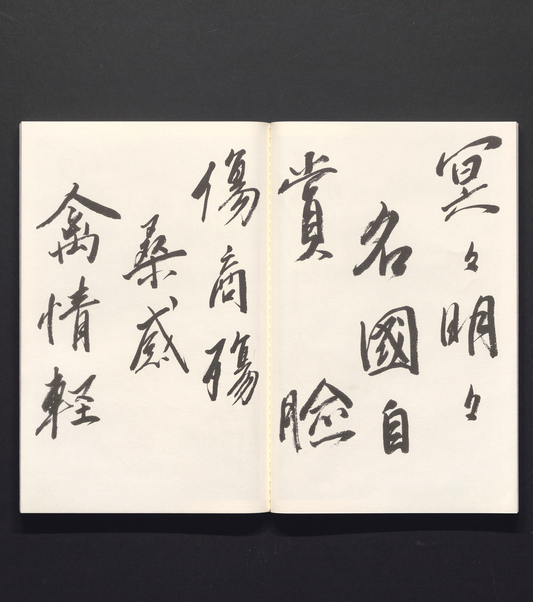 冥々明々
名國自
賞臉
傷商殤
桑感
禽情軽